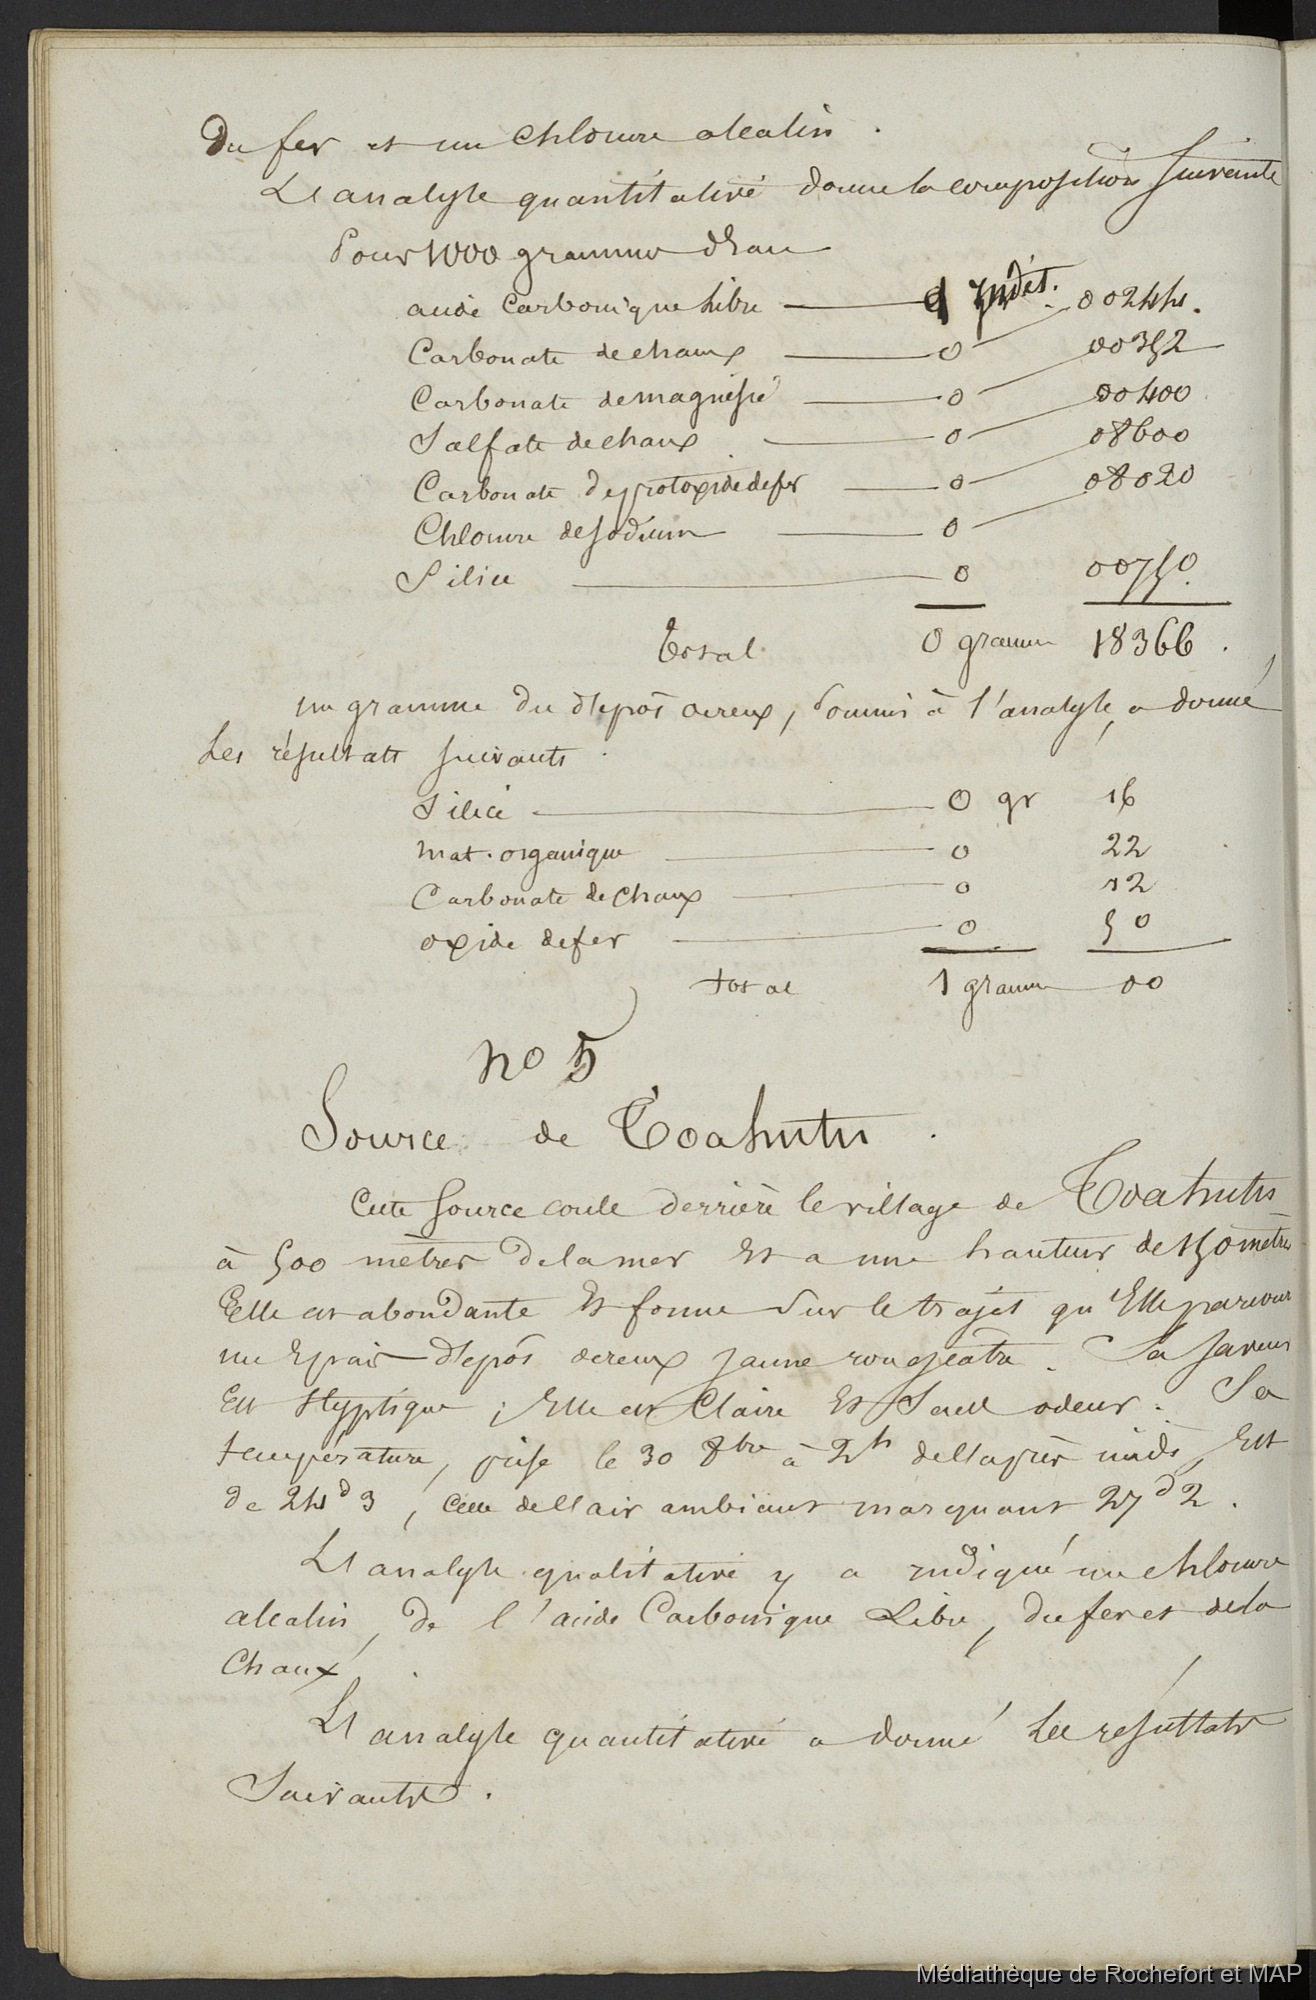 Du fer et un Chlorure alcalin.
L'analyse quantitative donne la composition suivante
Pour 1000 grammes d'Eau
acide Carbonique Libre — Indét. 00244.
Carbonate de chaux — 0 00352
Carbonate de magnésie — 0 00400
Sulfate de chaux — 0 08600
Carbonate de protoxide de fer — 0 08020
Chlorure de sodium — 0
Silice — 0 00750.
Total 0 gramme 18366.
un gramme du dépôt ocreux, soumis à l'analyse, a donné
Les résultats suivants.
Silice — 0 gr 16
mat. organique — 0 22
Carbonate de Chaux — 0 12
oxide de fer — 0 50
total 1 gramme 00
no 5
Source de Toahutu.
Cette Source coule derrière le village de Toahutu
à 500 mètres de la mer Et a une hauteur de 150 mètres
Elle est abondante Et forme sur le trajet qu'Elle parcourt
un Epais dépôt ocreux jaune rougeatre. Sa saveur
Est Styptique ; Elle est Claire Et Sans odeur. Sa
température, prise le 30 8bre à 2h de l'après midi, Est
de 24d3, celle de l'air ambiant marquant 27d2.
L'analyse qualitative y a indiqué un chlorure
alcalin, de l'acide Carbonique Libre, du fer et de la
Chaux.
L'analyse quantitative a donné Les résultats
Suivants.
Médiathèque de Rochefort et MAP